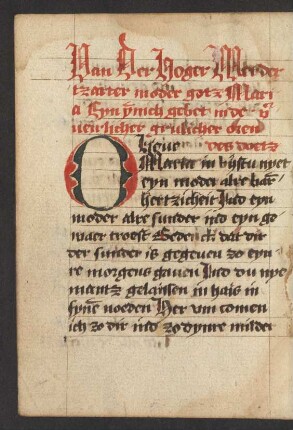 Van der hoger werder
tzarter moder gotz Mari
a Eyn ynich gebet in de
uerlicher grulicher eiend
des doetz
O Heue
Maria in bystu nyet
eyn moder alre bar
hertzicheit Ind eyn
moder alre sunder ind eyn ge
waer troest Gedenck dat dir
der sunder is gegeuen zo eyn
re morgens gauen Ind du nye
mantz gelaissen in hais in
syne noeden Her vm comen
ich zo dir ind zo dynre milder